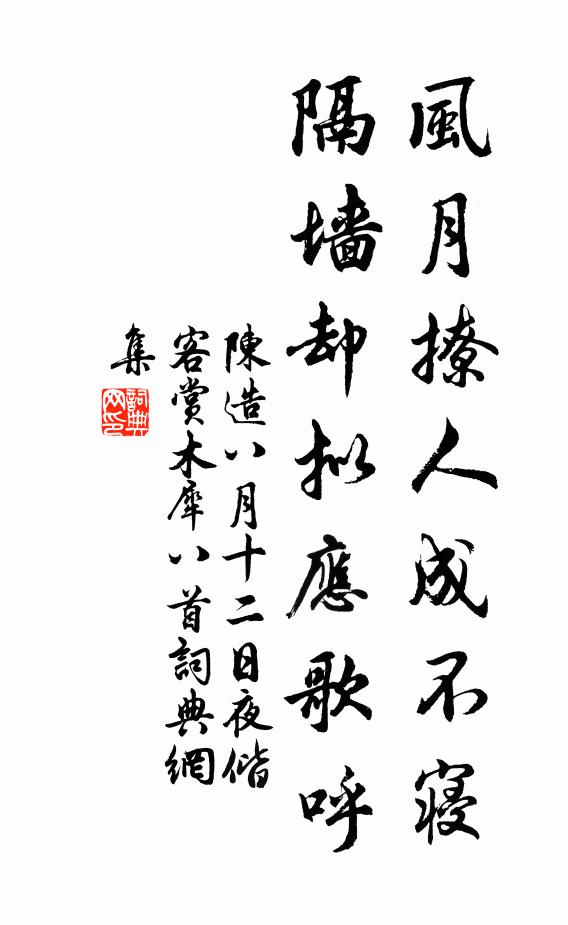 風月撩人成不寝
隔墻却拟應歌呼
陳造八月十二日夜偕
客賞木犀八首詞典網
集
詞典
网印